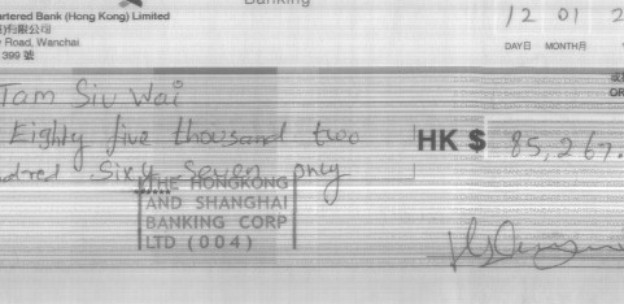 Banking
artered Bank (Hong Kong) Limited
有限公司
Road, Wanchai
399 號
12 01 2
DAY日 MONTH月
OR
Tam Siu Wai
Eighty five thousand two
HK $ 85,267.
dred Sixty Seven only
THE HONGKONG
AND SHANGHAI
BANKING CORP
LTD (004)